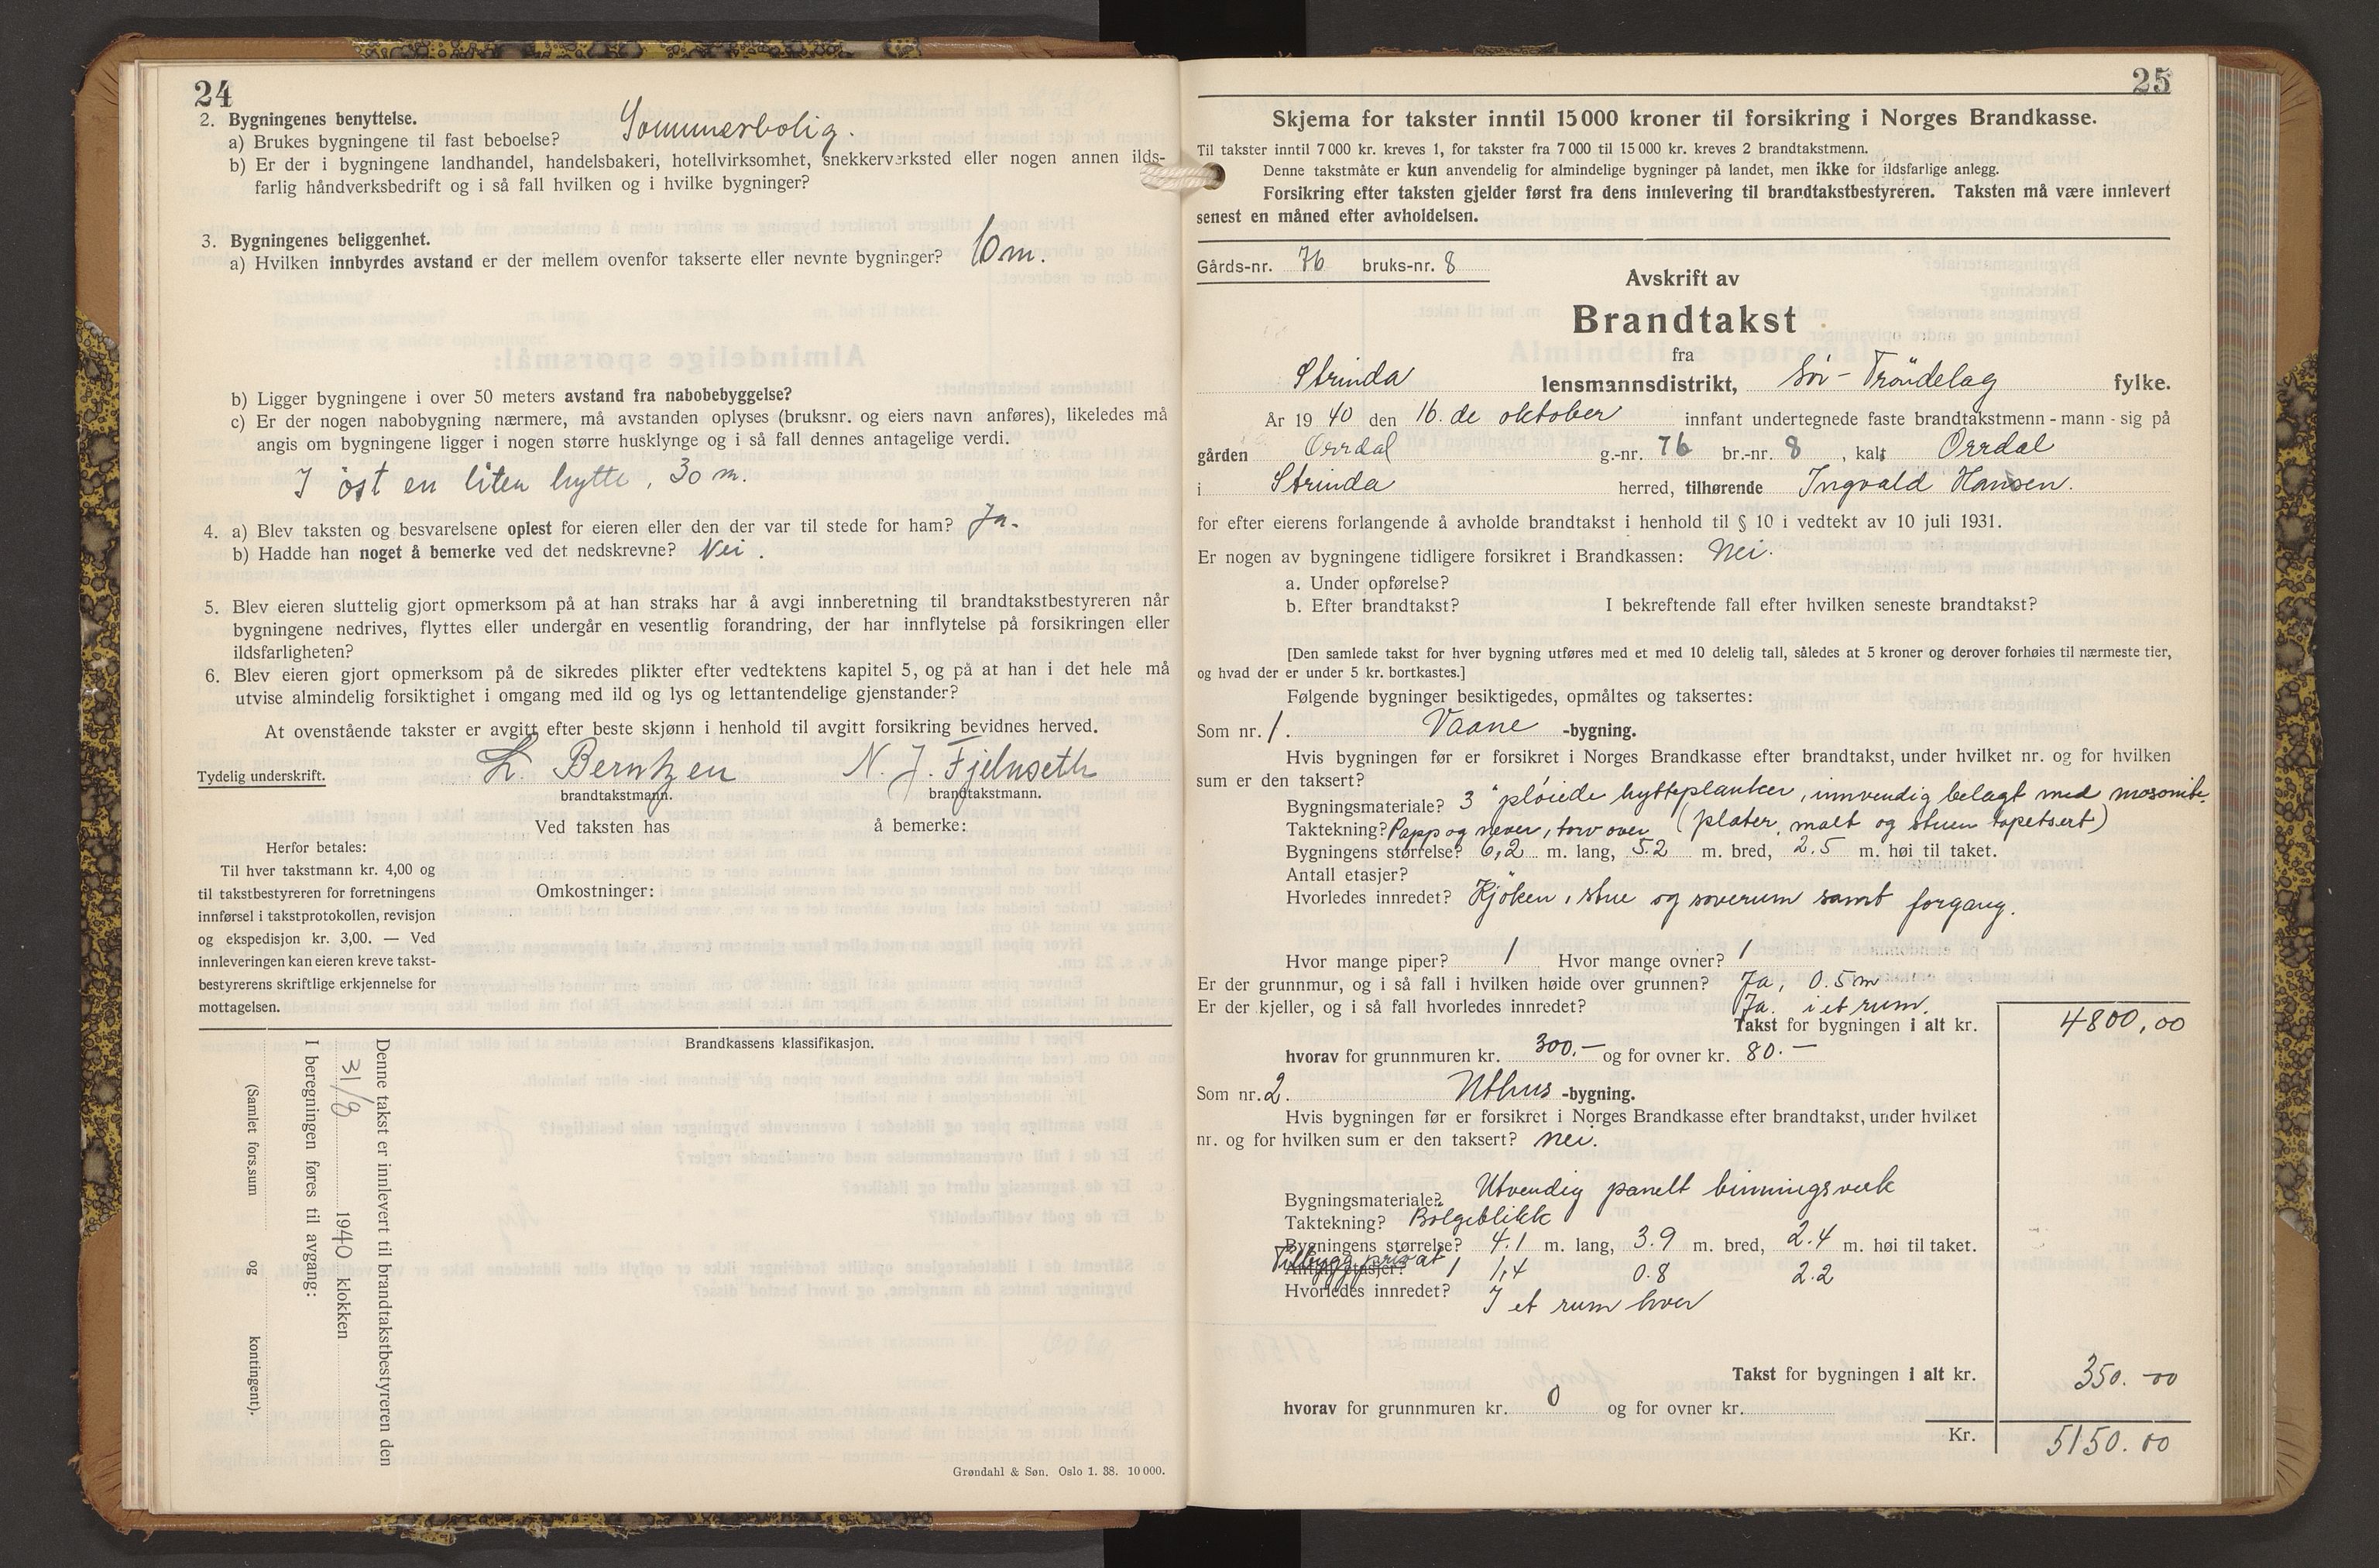 24
2. Bygningenes benyttelse.
a) Brukes bygningene til fast beboelse? Sommerbolig.
b) Er der i bygningene landhandel, handelsbakeri, hotellvirksomhet, snekkerverksted eller nogen annen ilds-
farlig håndverksbedrift og i så fall hvilken og i hvilke bygninger?
3. Bygningenes beliggenhet.
a) Hvilken innbyrdes avstand er der mellem ovenfor takserte eller nevnte bygninger? 10 m.
b) Ligger bygningene i over 50 meters avstand fra nabobebyggelse?
c) Er der nogen nabobygning nærmere, må avstanden oplyses (bruksnr. og eiers navn anføres), likeledes må
angis om bygningene ligger i nogen større husklynge og i så fall dennes antagelige verdi.
I öst en liten hytte, 30 m.
4. a) Blev taksten og besvarelsene oplest for eieren eller den der var til stede for ham? Ja.
b) Hadde han noget å bemerke ved det nedskrevne? Nei.
5. Blev eieren sluttelig gjort opmerksom på at han straks har å avgi innberetning til brandtakstbestyreren når
bygningene nedrives, flyttes eller undergår en vesentlig forandring, der har innflytelse på forsikringen eller
ildsfarligheten?
6. Blev eieren gjort opmerksom på de sikredes plikter efter vedtektens kapitel 5, og på at han i det hele må
utvise almindelig forsiktighet i omgang med ild og lys og lettantendelige gjenstander?
At ovenstående takster er avgitt efter beste skjønn i henhold til avgitt forsikring bevidnes herved.
Tydelig underskrift. L. Berntzen N. J. Fjelnseth
brandtakstmann. brandtakstmann.
Ved taksten has å bemerke:
Herfor betales:
Til hver takstmann kr. 4,00 og
til takstbestyreren for forretningens
innførsel i takstprotokollen, revisjon
og ekspedisjon kr. 3,00. — Ved
innleveringen kan eieren kreve takst-
bestyrerens skriftlige erkjennelse for
mottagelsen.
Omkostninger:
Brandkassens klassifikasjon.
Denne takst er innlevert til brandtakstbestyreren den
31/8 1940 klokken
I beregningen føres til avgang:
(Samlet fors.sum og kontingent).
Grøndahl & Søn. Oslo 1. 38. 10 000.
25
Skjema for takster inntil 15 000 kroner til forsikring i Norges Brandkasse.
Til takster inntil 7 000 kr. kreves 1, for takster fra 7 000 til 15 000 kr. kreves 2 brandtakstmenn.
Denne takstmåte er kun anvendelig for almindelige bygninger på landet, men ikke for ildsfarlige anlegg.
Forsikring efter taksten gjelder først fra dens innlevering til brandtakstbestyreren. Taksten må være innlevert
senest en måned efter avholdelsen.
Gårds-nr. 76 bruks-nr. 8
Avskrift av
Brandtakst
fra
Strinda lensmannsdistrikt, Sör-Tröndelag fylke.
År 19 40 den 16. de oktober innfant undertegnede faste brandtakstmenn - mann - sig på
gården Orrdal g.-nr. 76 br.-nr. 8, kalt Orrdal
i Strinda herred, tilhørende Ingvald Hansen.
for efter eierens forlangende å avholde brandtakst i henhold til § 10 i vedtekt av 10 juli 1931.
Er nogen av bygningene tidligere forsikret i Brandkassen: Nei.
a. Under opførelse?
b. Efter brandtakst? I bekreftende fall efter hvilken seneste brandtakst?
[Den samlede takst for hver bygning utføres med et med 10 delelig tall, således at 5 kroner og derover forhøies til nærmeste tier,
og hvad der er under 5 kr. bortkastes.]
Følgende bygninger besiktigedes, opmåltes og taksertes:
Som nr. 1. Vaane -bygning.
Hvis bygningen før er forsikret i Norges Brandkasse efter brandtakst, under hvilket nr. og for hvilken
sum er den taksert?
Bygningsmateriale? 3" plöiede hytteplanker, innvendig belagt med masonite.
Taktekning? Papp og never, torv over (plater, malt og stuen tapetsert)
Bygningens størrelse? 6,2 m. lang, 5.2 m. bred, 2.5 m. høi til taket.
Antall etasjer?
Hvorledes innredet? Kjöken, stue og soverum samt forgang.
Hvor mange piper? 1 Hvor mange ovner? 1
Er der grunnmur, og i så fall i hvilken høide over grunnen? Ja, 0.5 m
Er der kjeller, og i så fall hvorledes innredet? Ja. i et rum.
Takst for bygningen i alt kr. 4800,00
hvorav for grunnmuren kr. 300.— og for ovner kr. 80.—
Som nr. 2. Uthus -bygning.
Hvis bygningen før er forsikret i Norges Brandkasse efter brandtakst, under hvilket
nr. og for hvilken sum er den taksert? nei.
Bygningsmateriale? Utvendig panelt binningsverk
Taktekning? Bölgeblikk
Bygningens størrelse? 4.1 m. lang, 3.9 m. bred, 2.4 m. høi til taket.
Tilbygg privat
Antall etasjer? 1 1,4 0.8 2.2
Hvorledes innredet? I et rum hver
Takst for bygningen i alt kr. 350.00
hvorav for grunnmuren kr. 0 og for ovner kr.
Kr. 5150.00